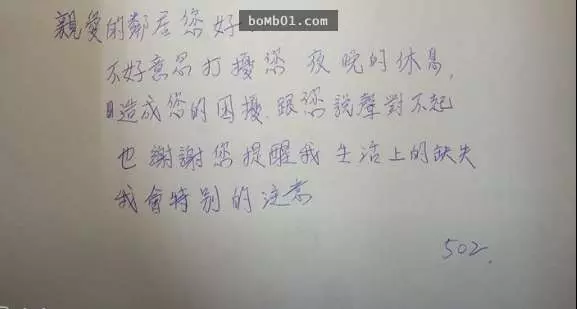 boMb01.com
親愛的鄰居您好.
不好意思打擾您 夜晚的休息,
造成您的困擾.跟您說聲對不起
也謝謝您提醒我生活上的缺失
我會特別的注意
502.